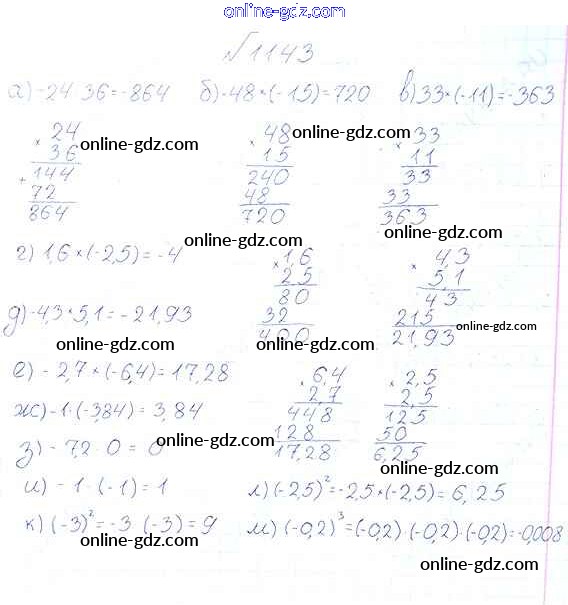 online-gdz.com
№1143
а) -24·36=-864 б) -48×(-15)=720 в) 33×(-11)=-363
× 24 × 48 × 33
36 15 11
+ 144 240 33
72 48 33
864 720 363
online-gdz.com online-gdz.com online-gdz.com
online-gdz.com online-gdz.com
г) 1,6×(-2,5)=-4 × 1,6 × 4,3
2,5 5,1
80 43
д) -4,3×5,1=-21,93 32 215
400 21,93
online-gdz.com online-gdz.com online-gdz.com
е) -2,7×(-6,4)=17,28 × 6,4 × 2,5
2,7 2,5
ж) -1·(-3,84)=3,84 448 125
128 50
з) -7,2·0=0 17,28 6,25
online-gdz.com online-gdz.com
и) -1·(-1)=1 л) (-2,5)²=-2,5×(-2,5)=6,25
к) (-3)²=-3·(-3)=9 м) (-0,2)³=(-0,2)·(-0,2)·(-0,2)=-0,008
online-gdz.com online-gdz.com